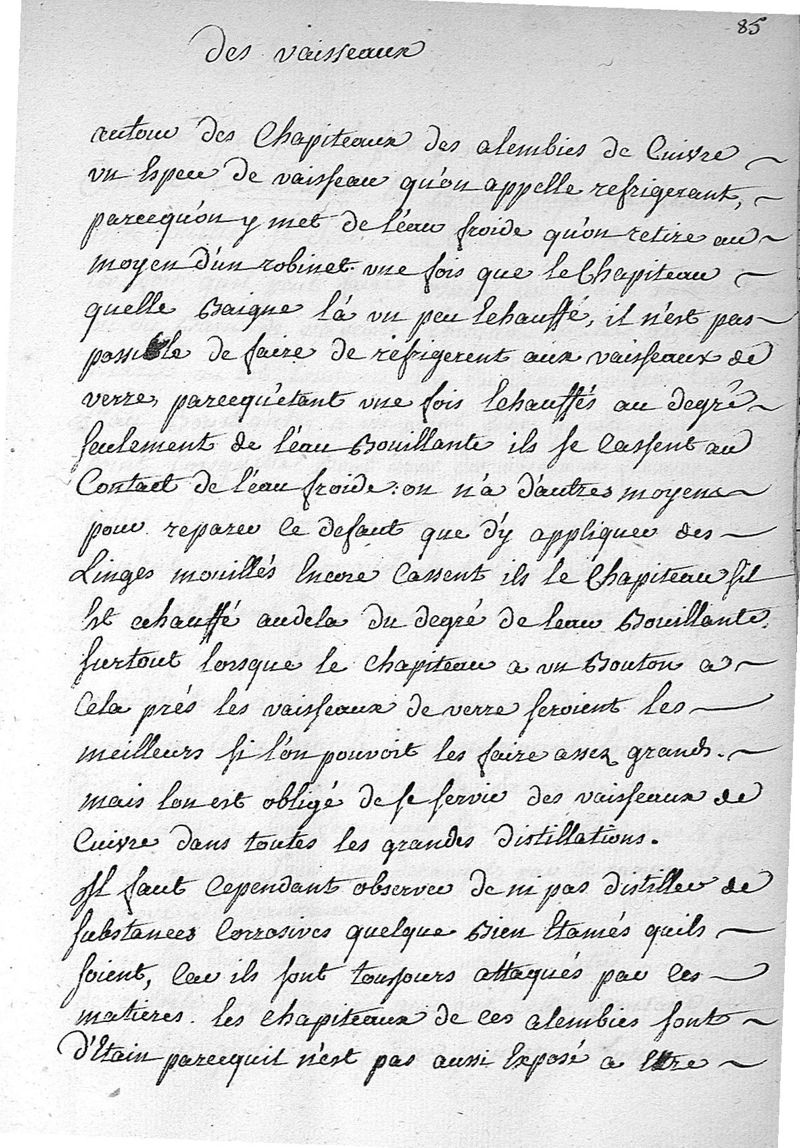 85
des vaisseaux
autour des Chapiteaux des alembics de Cuivre
un Espece de vaisseau qu'on appelle refrigerant,
parcequ'on y met de l'eau froide qu'on retire au
moyen d'un robinet. une fois que le Chapiteau
quelle Baigne l'a un peu Echauffé, il n'est pas
possible de faire de réfrigerent aux vaisseaux de
verre, parcequ'etant une fois Echauffés au degré
seulement de l'eau Bouillante ils se Cassent au
Contact de l'eau froide: on n'a d'autres moyens
pour reparer ce defaut que d'y appliquer des
Linges mouillés Encore Cassent ils le Chapiteau sil
Est echauffé audela du degré de leau Bouillante,
surtout lorsque le chapiteau a un Bouton a
Cela prés les vaisseaux de verre seroient les
meilleurs si l'on pouvoit les faire assez grands.
mais lon est obligé de se servir des vaisseaux de
Cuivre dans toutes les grandes distillations.
Il faut Cependant observer de ni pas distiller de
substances Corrosives quelque Bien Etamés quils
soient, Car ils sont tousjours attaqués par Ces
matieres. les chapiteaux de ces alembics sont
d'Etain parcequil n'est pas aussi Exposé a Etre